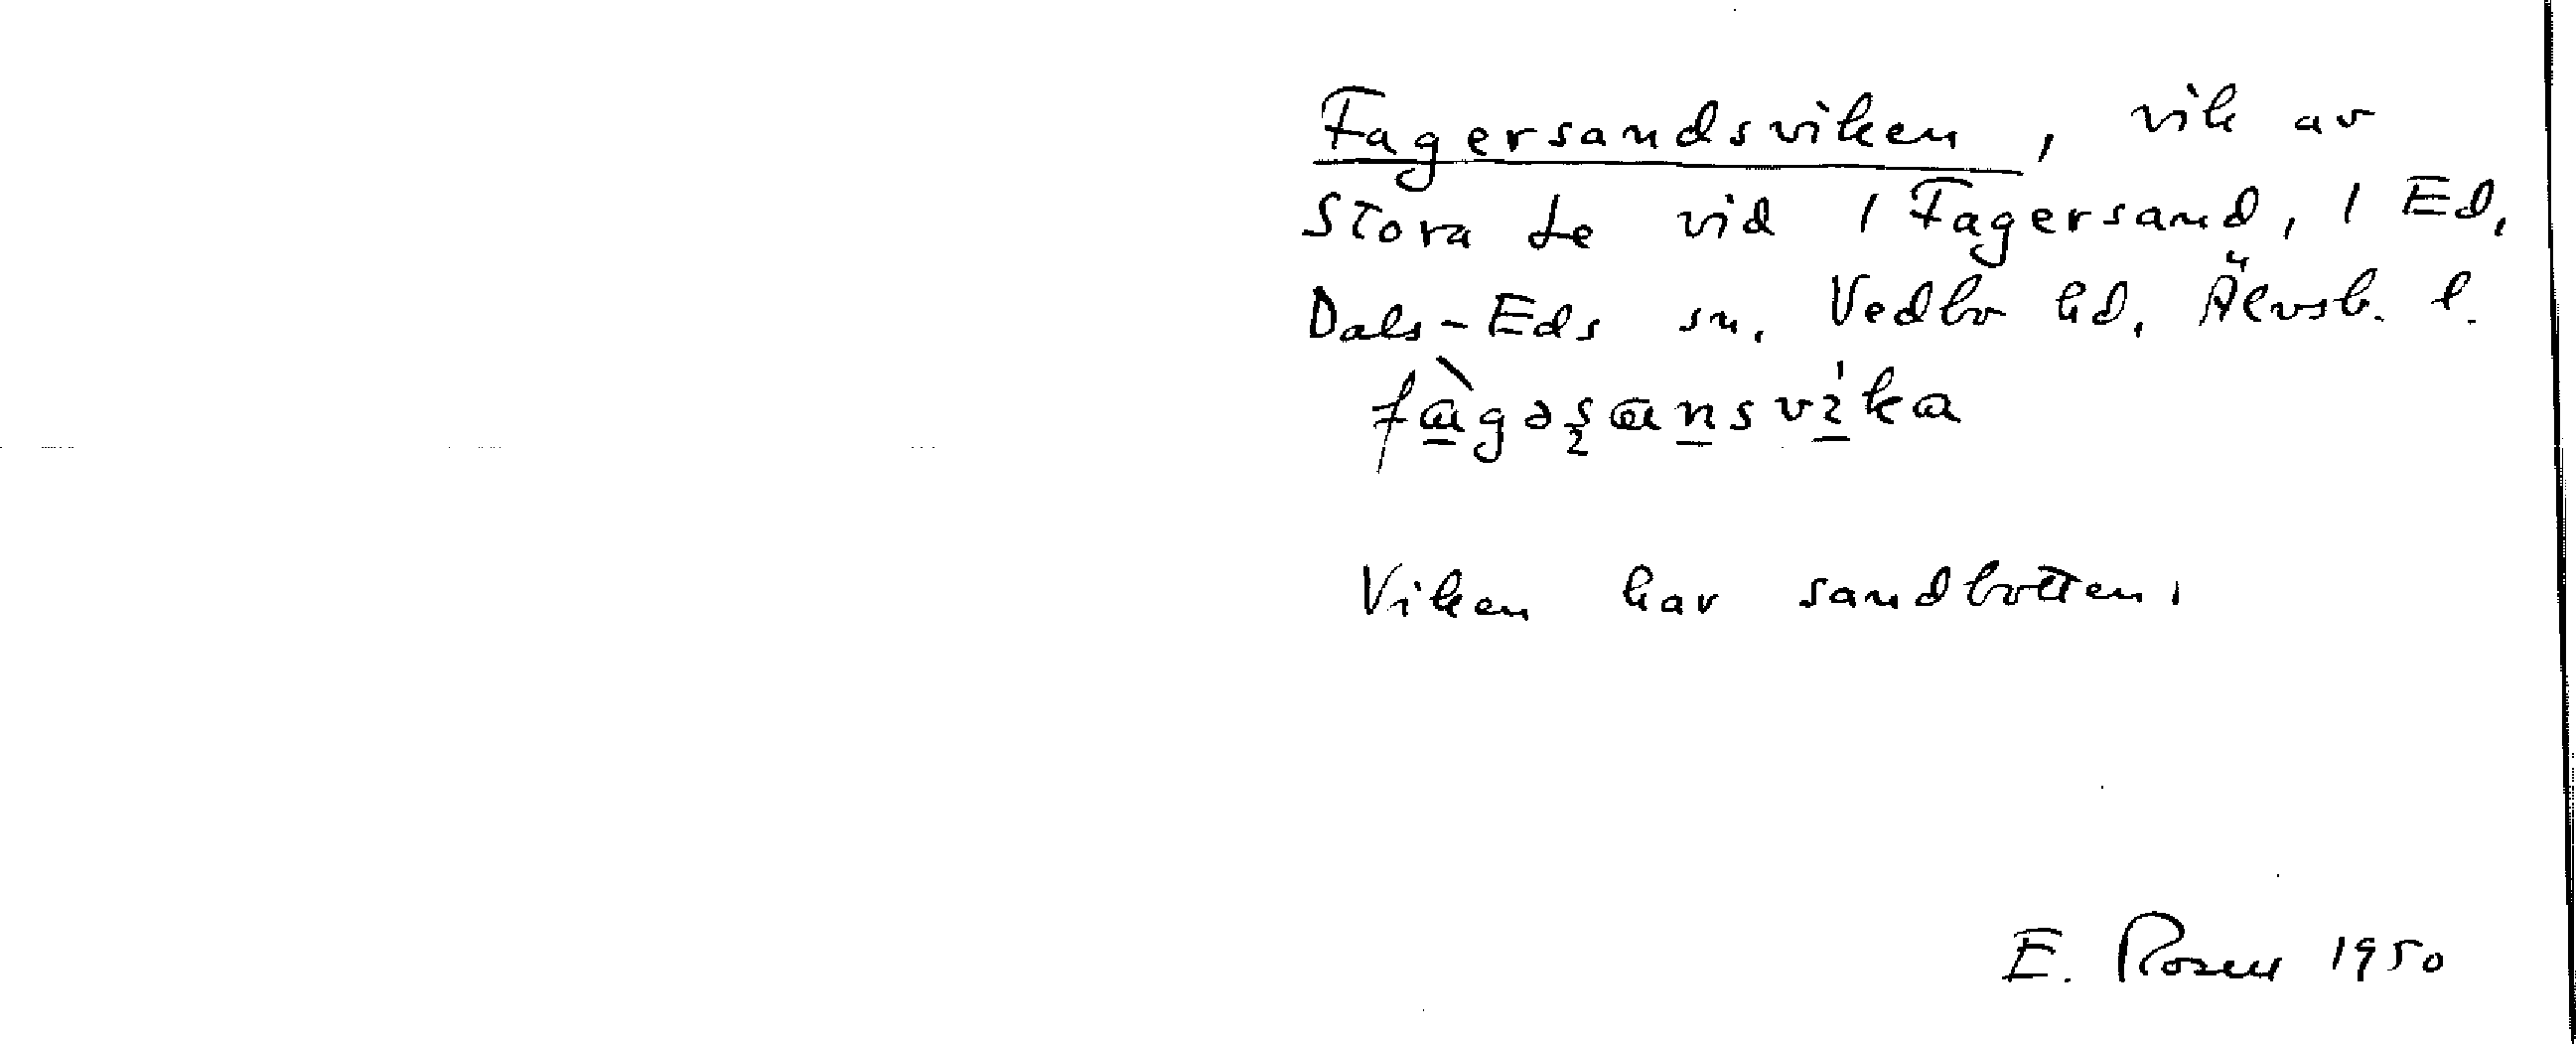 Fagersandsviken, vik av
Stora Le vid 1 Fagersand, 1 Ed,
Dals-Eds sn. Vedbo hd, Älvsb. l.
fàgəʂansvika
Viken har sandbotten.
E. Rosen 1950